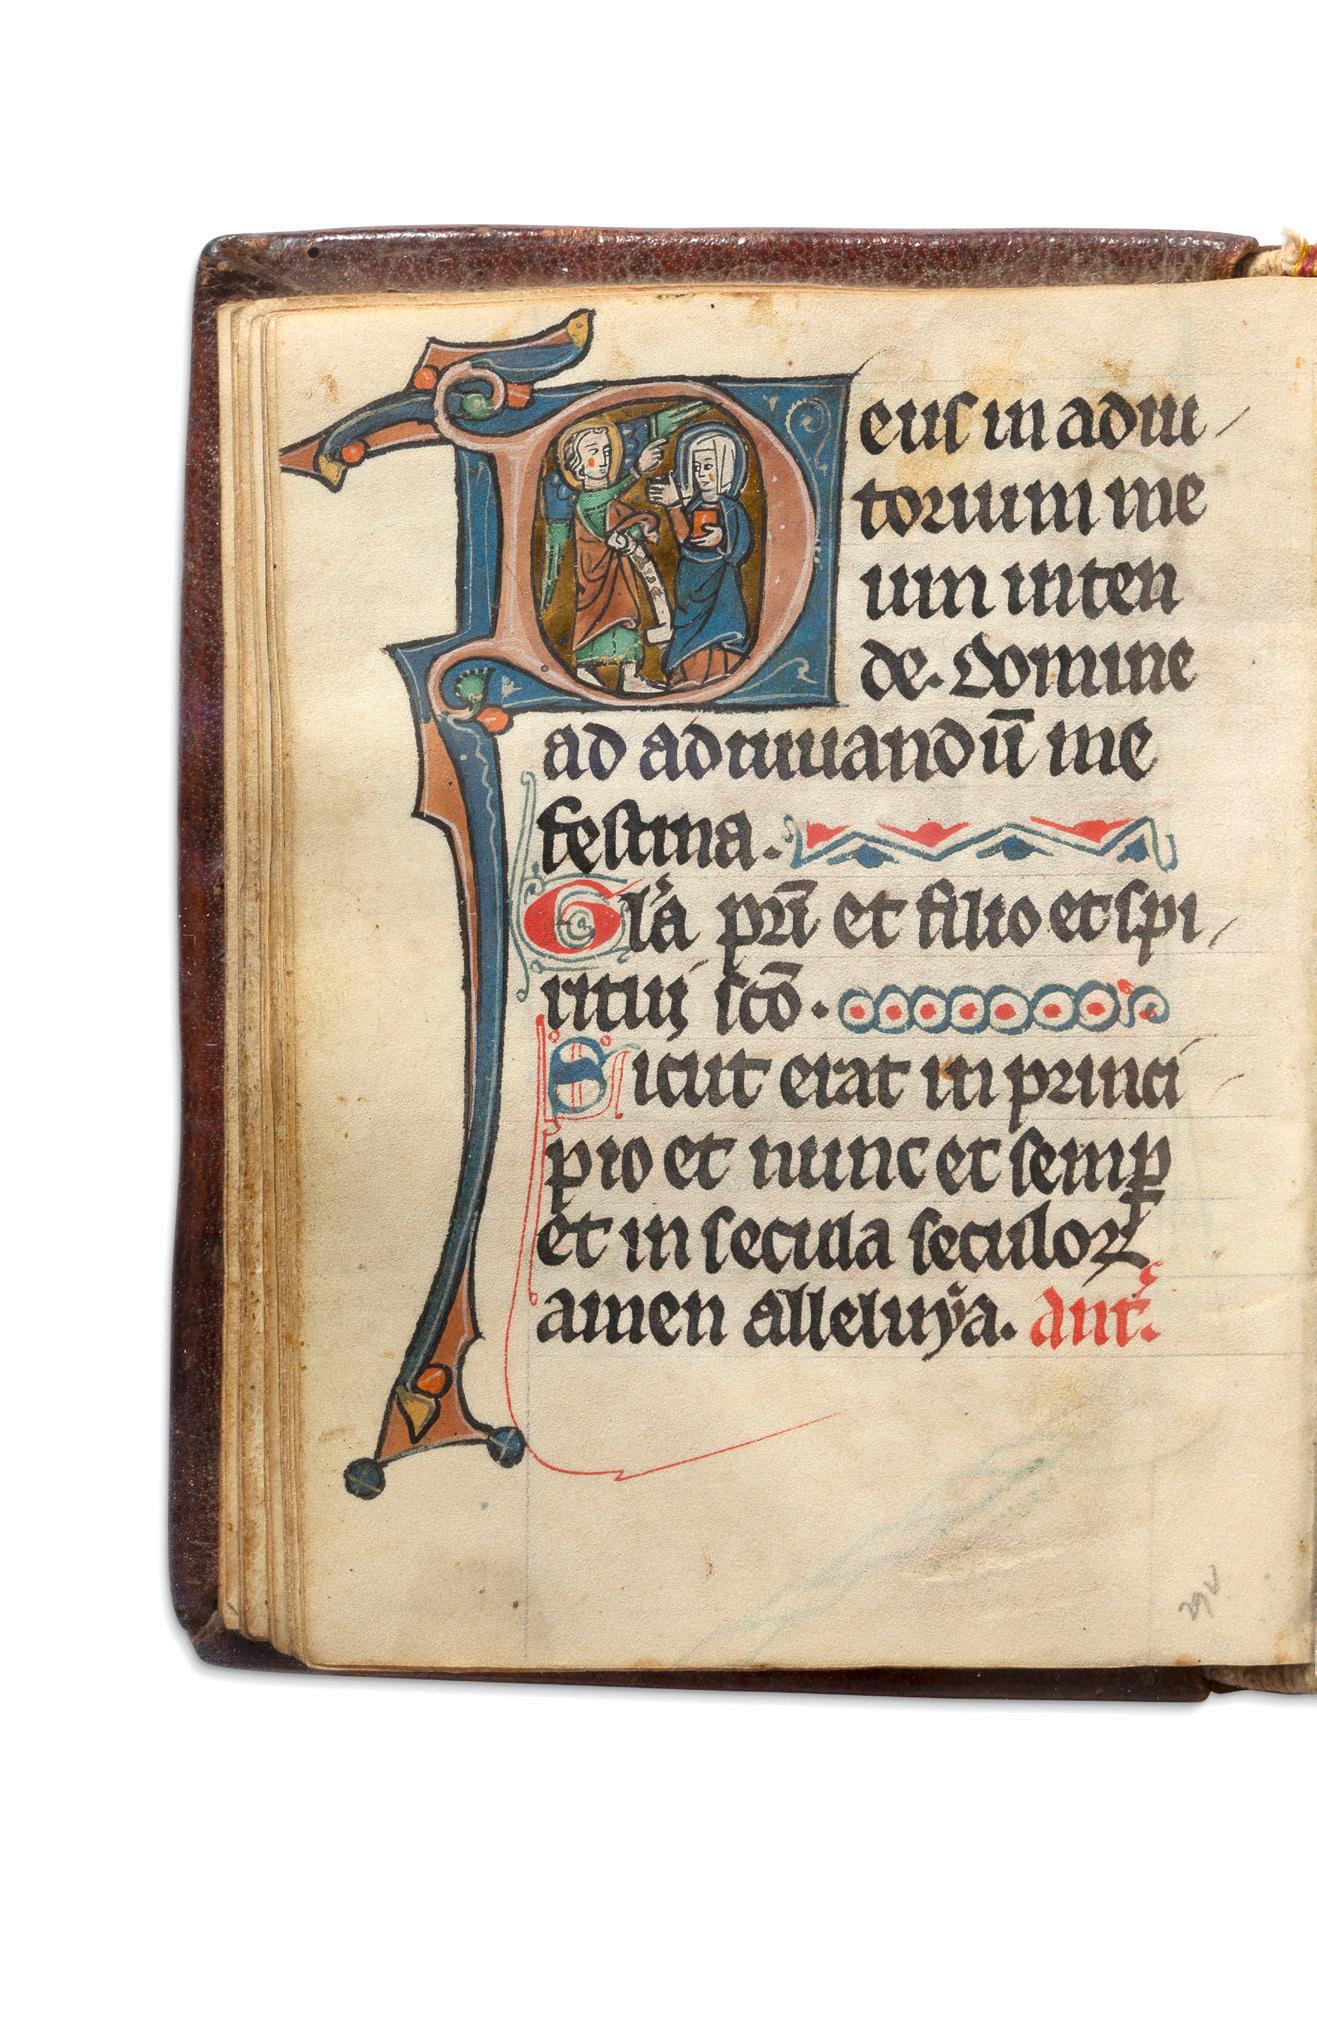 Deus in adiu
torium me
um inten
de. Domine
ad adiuuandū me
festina.
Gl'a pri̅ et filio et spi
ritui sc̅o.
Sicut erat in princi
pio et nunc et semp̲
et in secula seculoꝝ
amen alleluya. Ant.